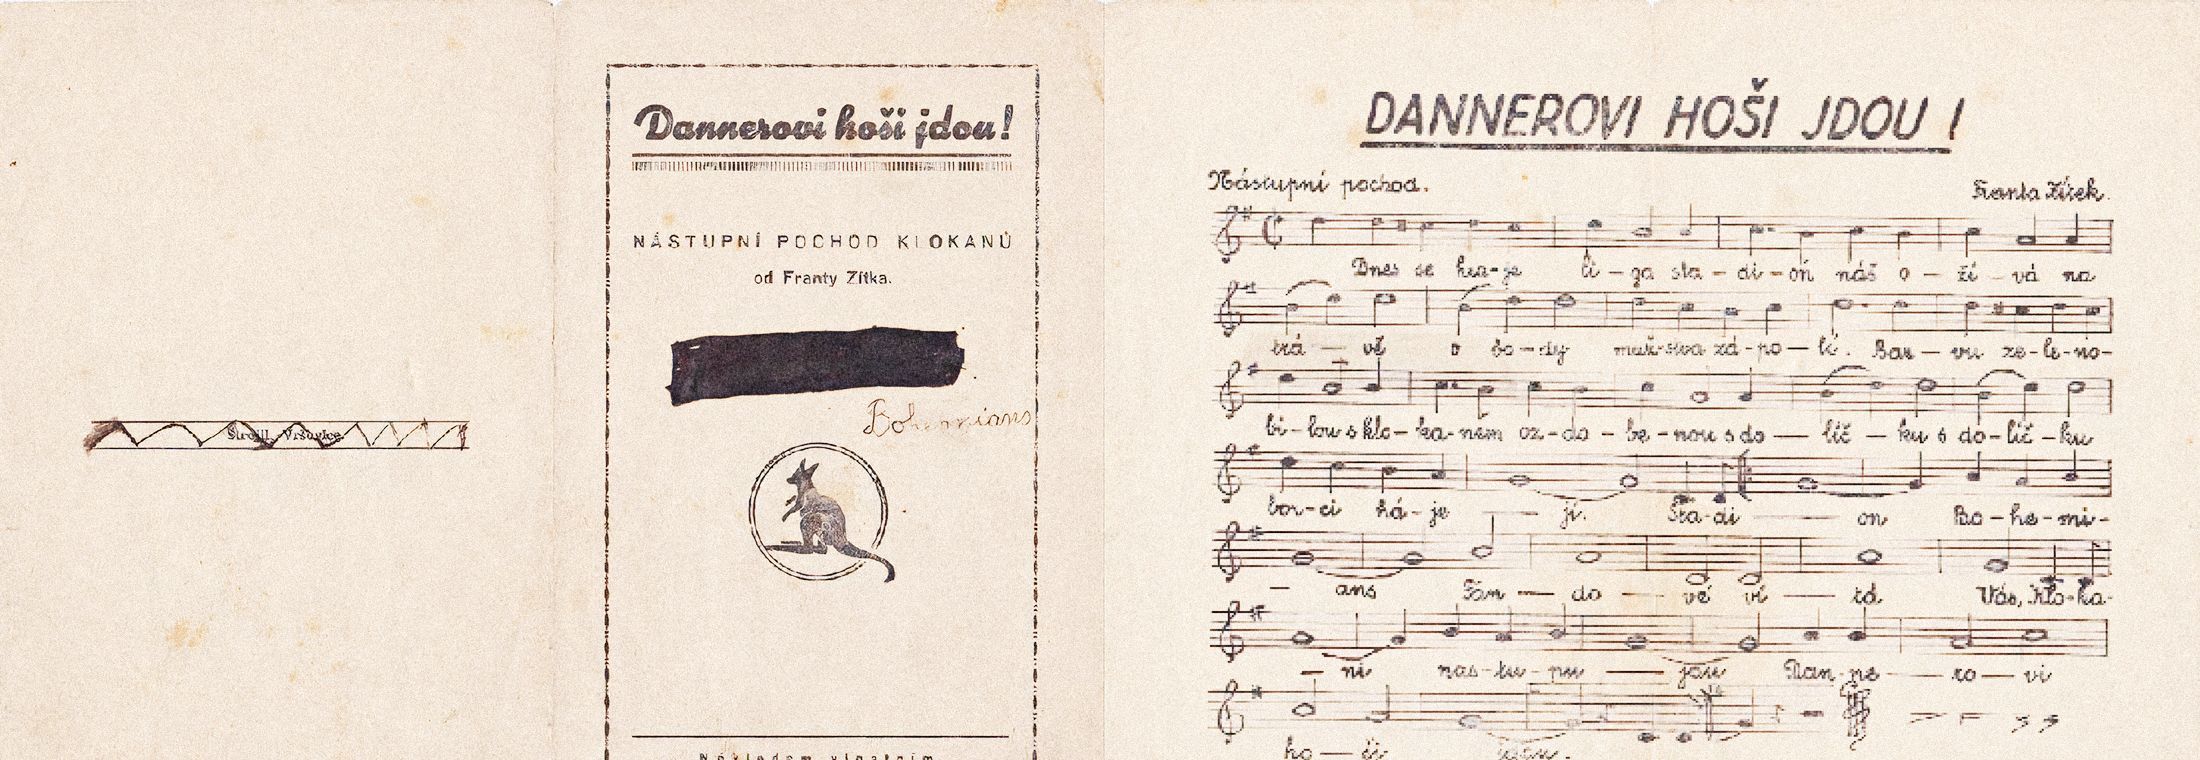 Strojil, Vršovice
Dannerovi hoši jdou!
NÁSTUPNÍ POCHOD KLOKANŮ
od Franty Zítka.
Bohemians
Nákladem vlastním
DANNEROVI HOŠI JDOU !
Nástupní pochod.
Franta Zítek.
Dnes se hra-je li-ga sta-di-on náš o-ží-vá na
trá-vě o bo-dy muž-stva zá-po-lí. Bar-vu ze-le-no-
bí-lou s klo-ka-ném oz-do-be-nou s do-líč-ku s do-líč-ku
bor-ci há-je-jí. Sta-di-on Bo-he-mi-
-ans Fan-do-vé ví-tá Vás, Klo-ka-
-ni nas-tu-pu-jou Dan-ne-ro-vi
ho-ši jdou.